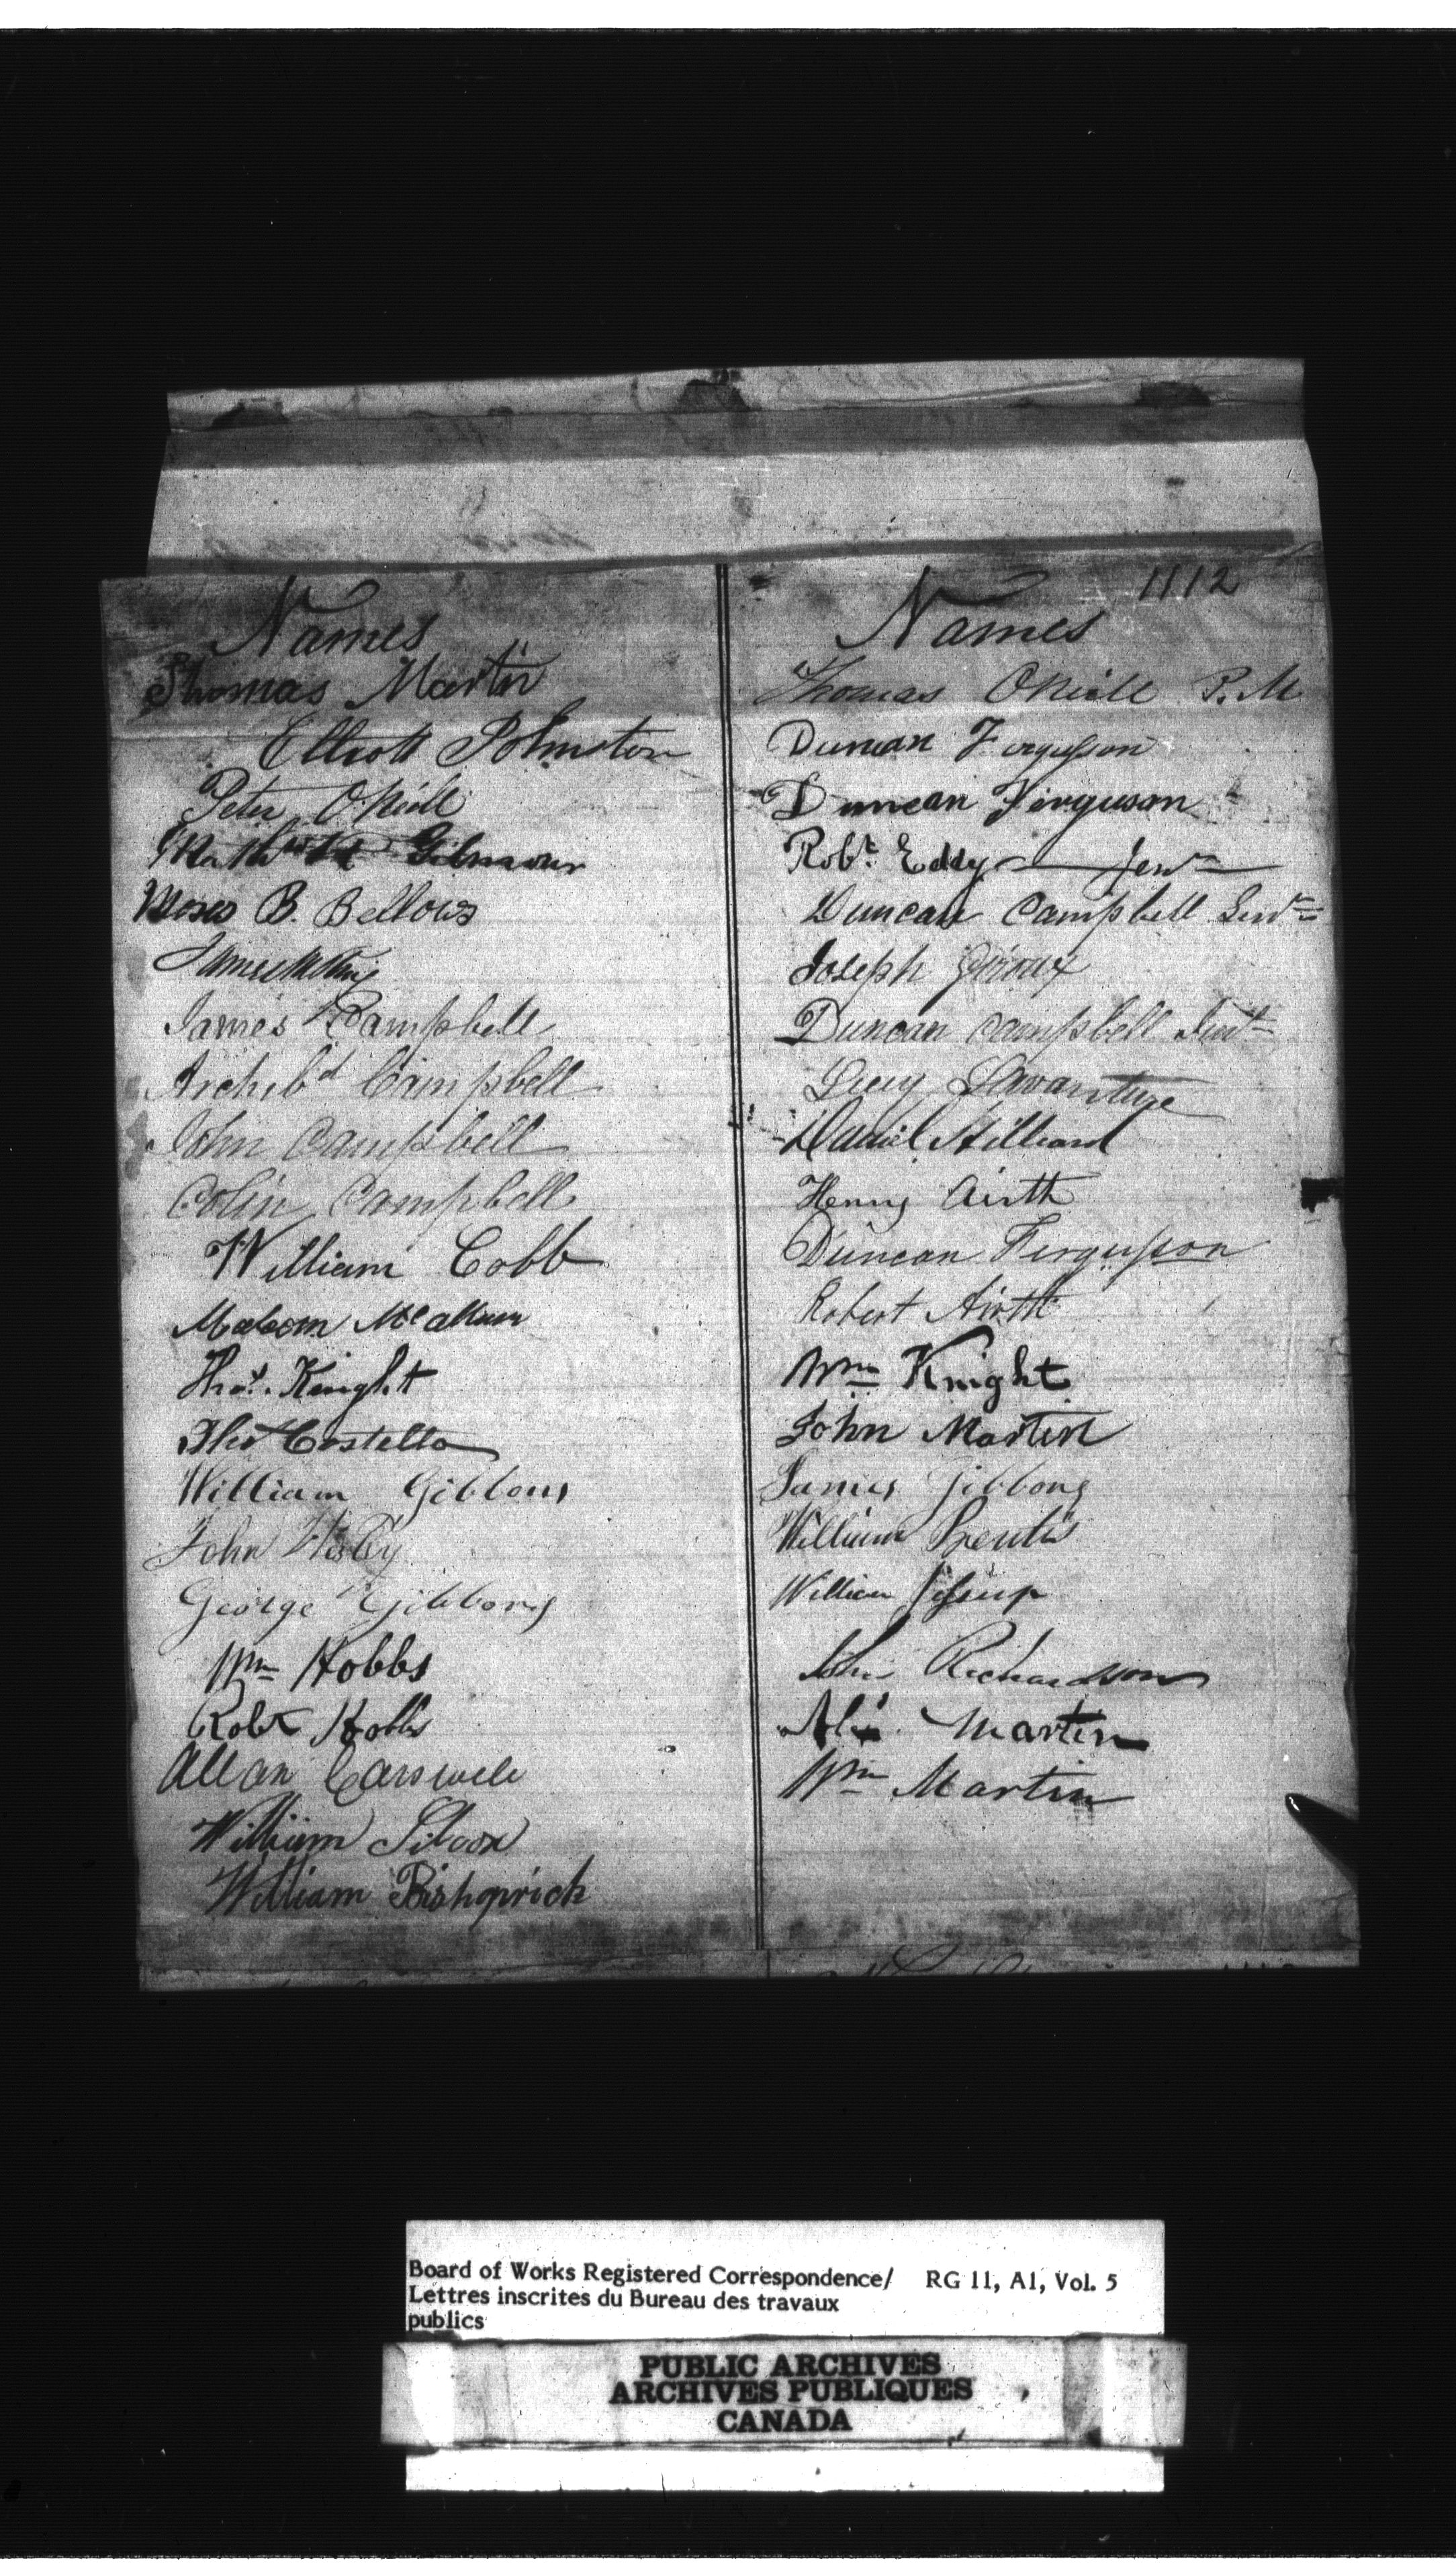 1112
Names
Thomas Martin
Elliott Johnston
Peter O'Neill
Gilmour
Moses B. Bellows
James
James Campbell
Archibd Campbell
John Campbell
Colin Campbell
William Cobb
Malcom McAllum
Thos. Knight
Thos Costello
William Gibbons
John
George Gibbons
Wm Hobbs
Robt Hobbs
Allan Carswell
William Silcox
William Bishoprick
Names
Thomas ONeill P.M
Duncan Fergusson
Duncan Ferguson
Robt. Eddy Senr
Duncan Campbell Senr
Joseph Giroux
Duncan Campbell Junr
Lavanture
Daniel Hilliard
Henry Airth
Duncan Fergusson
Robert Airth
Wm Knight
John Martin
James Gibbons
William
William Jessup
John Richardson
Alex Martin
Wm Martin
Board of Works Registered Correspondence/ RG 11, A1, Vol. 5
Lettres inscrites du Bureau des travaux
publics
PUBLIC ARCHIVES
ARCHIVES PUBLIQUES
CANADA